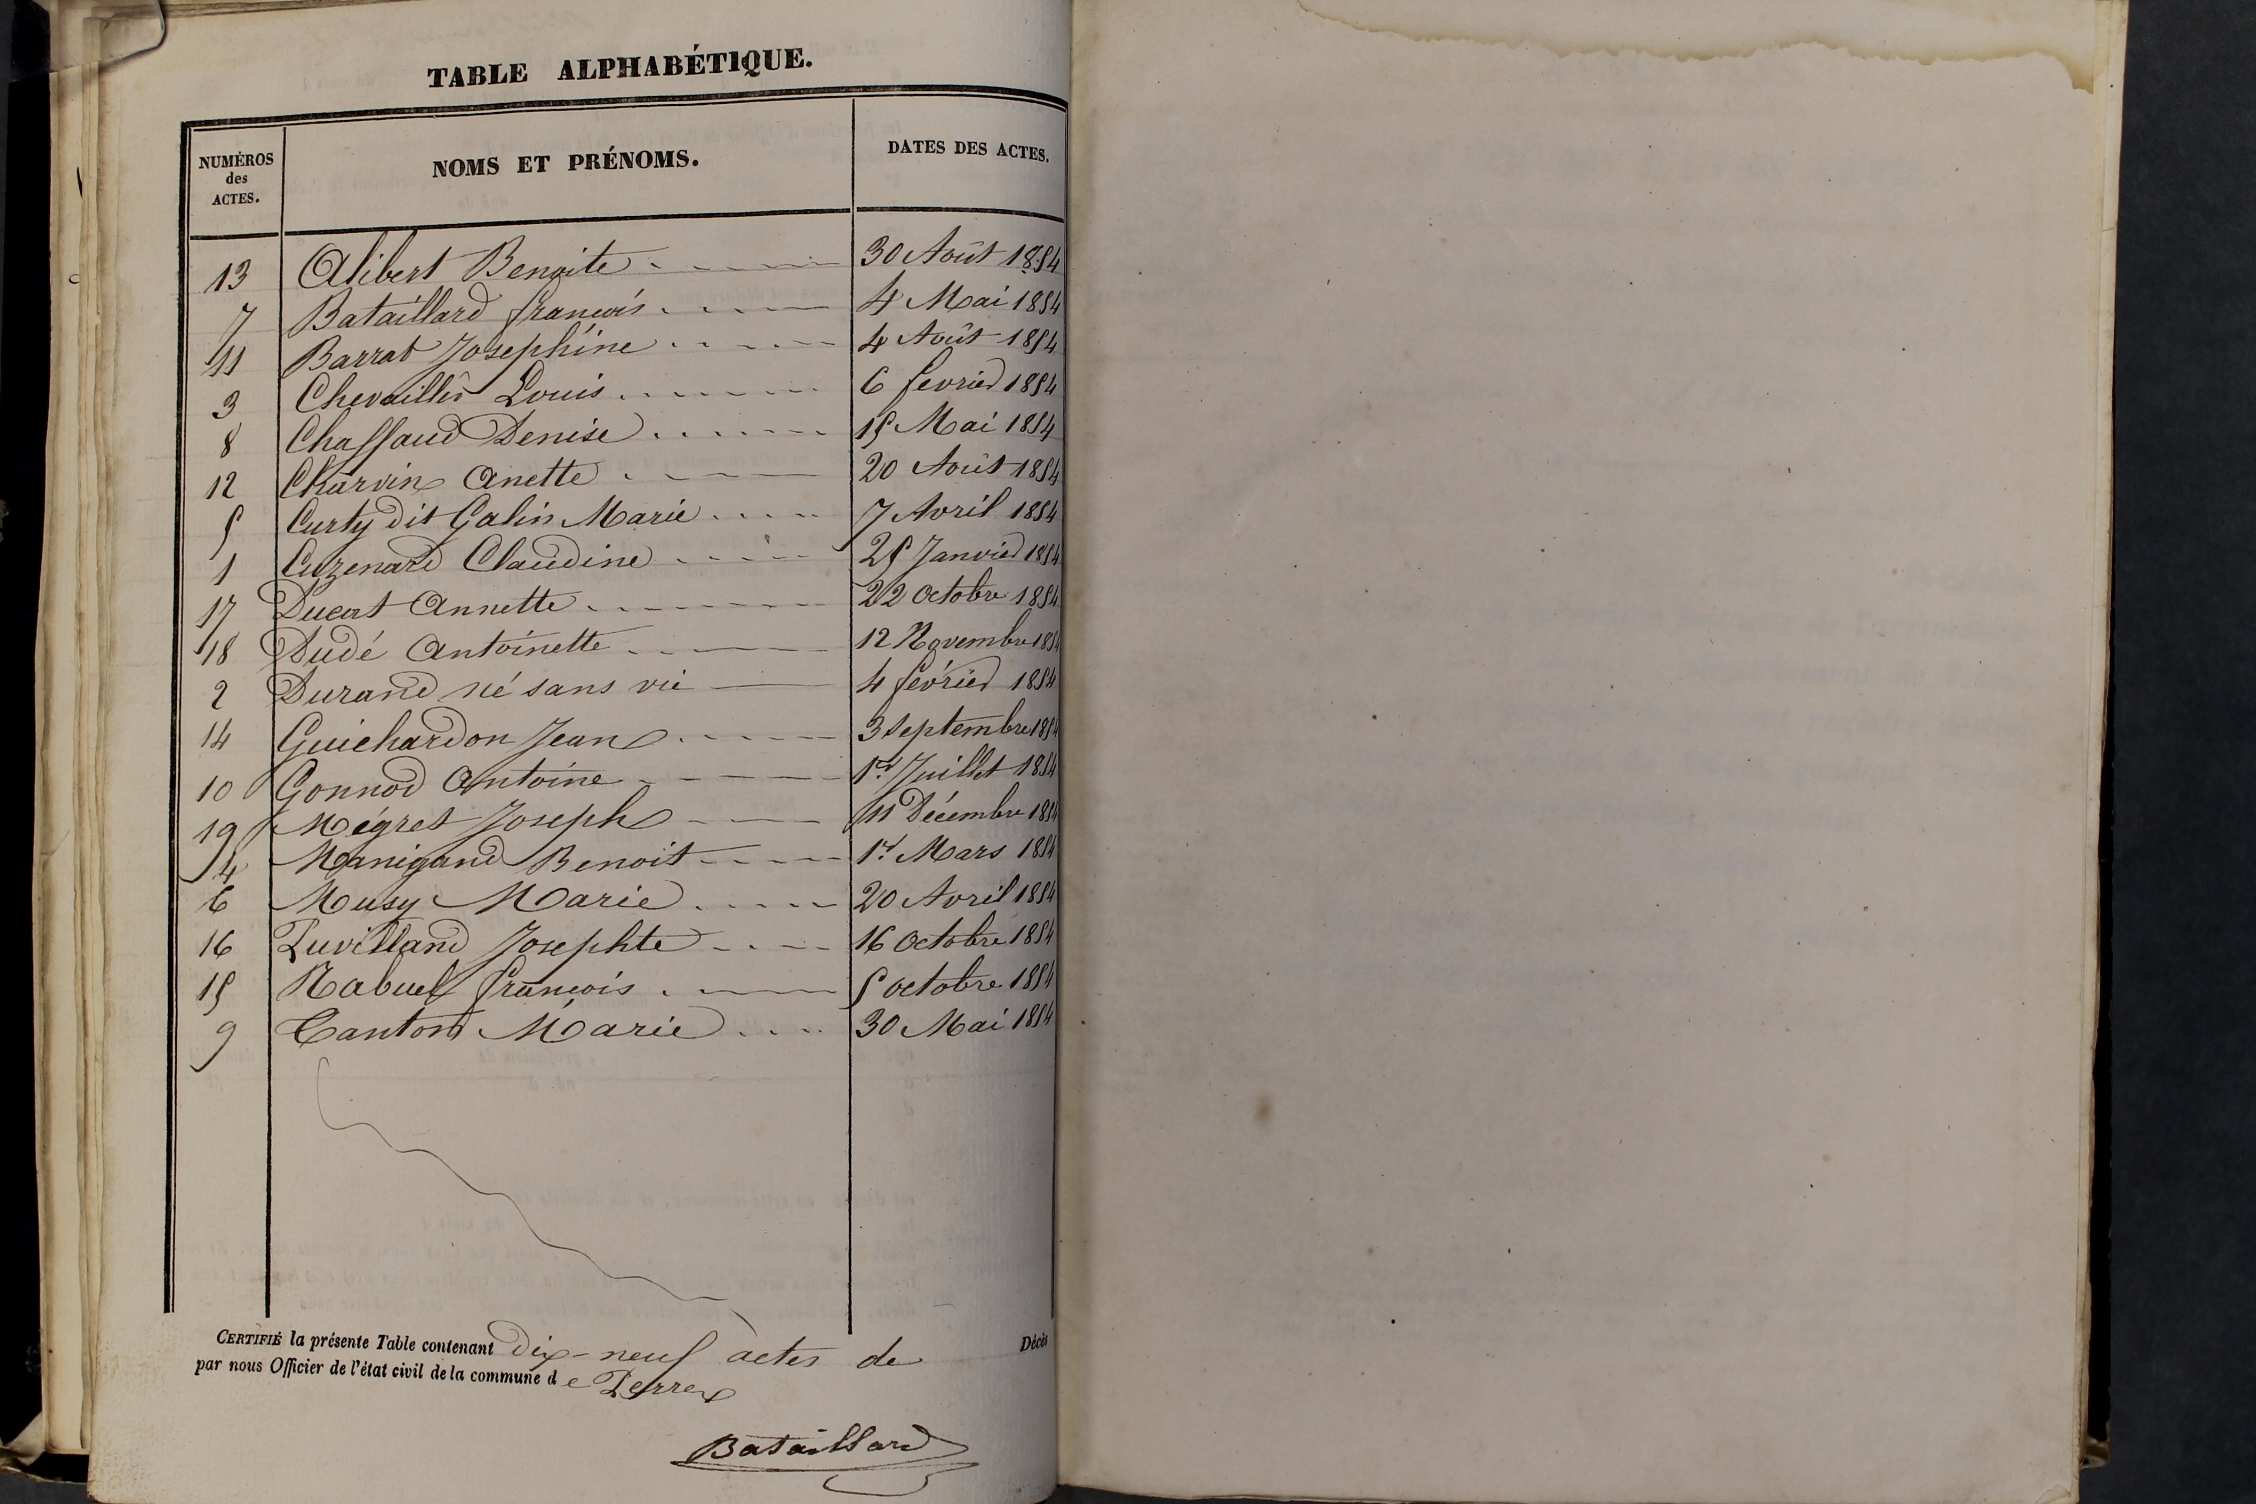 TABLE ALPHABÉTIQUE.
NUMÉROS des ACTES. NOMS ET PRÉNOMS. DATES DES ACTES.
13 Alibert Benoite 30 Août 1854
7 Bataillard françois 4 Mai 1854
11 Barrat Joséphine 4 Août 1854
3 Chevaillèr Louis 6 fevrier 1854
8 Chaffaud Denise 15 Mai 1854
12 Charvin Anette 20 Août 1854
5 Curty dit Galin Marie 7 Avril 1854
1 Cuzenard Claudine 25 Janvier 1854
17 Ducrt Annette 22 Octobre 1854
18 Dudé Antoinette 12 Novembre 1854
2 Durand né sans vie 4 février 1854
14 Guichardon Jean 3 Septembre 1854
10 Gonnod Antoine 1er Juillet 1854
19 Mégret Joseph 11 Décembre 1854
4 Manigand Benoit 1er Mars 1854
6 Musy Marie 20 Avril 1854
16 Puvilland Josephte 16 Octobre 1854
15 Rabuel françois 5 octobre 1854
9 Canton Marie 30 Mai 1854
CERTIFIÉ la présente Table contenant Dix-neuf actes de Décès
par nous Officier de l'état civil de la commune de Perrex
Bataillard